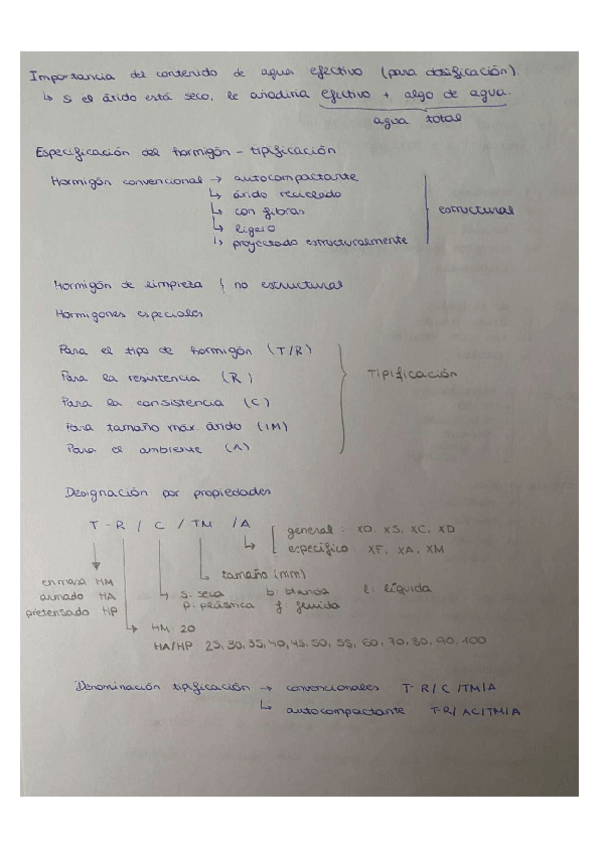 Importancia del contenido de agua efectivo (para dosificación).
↳ S el árido está seco, le añadiria efectivo + algo de agua.
agua total
Especificación del hormigón - tipificación
Hormigón convencional → autocompactante
↳ árido reciclado
↳ con fibras
↳ ligero
↳ proyectado estructuralmente
estructural
Hormigón de limpieza } no estructural
Hormigones especiales
Para el tipo de hormigón (T/R)
Para la resistencia (R)
Para la consistencia (C)
Para tamaño máx. árido (TM)
Para el ambiente (A)
Tipificación
Designación por propiedades
T - R / C / TM / A
general: XO. XS, XC, XD
específico: XF, XA, XM
tamaño (mm)
en masa HM
armado HA
pretensado HP
s: seca b: blanda l: líquida
p: plástica f: fluida
HM: 20
HA/HP 25, 30, 35, 40, 45, 50, 55, 60, 70, 80, 90, 100
Denominación tipificación → convencionales T-R/C/TM/A
↳ autocompactante T-R/AC/TM/A